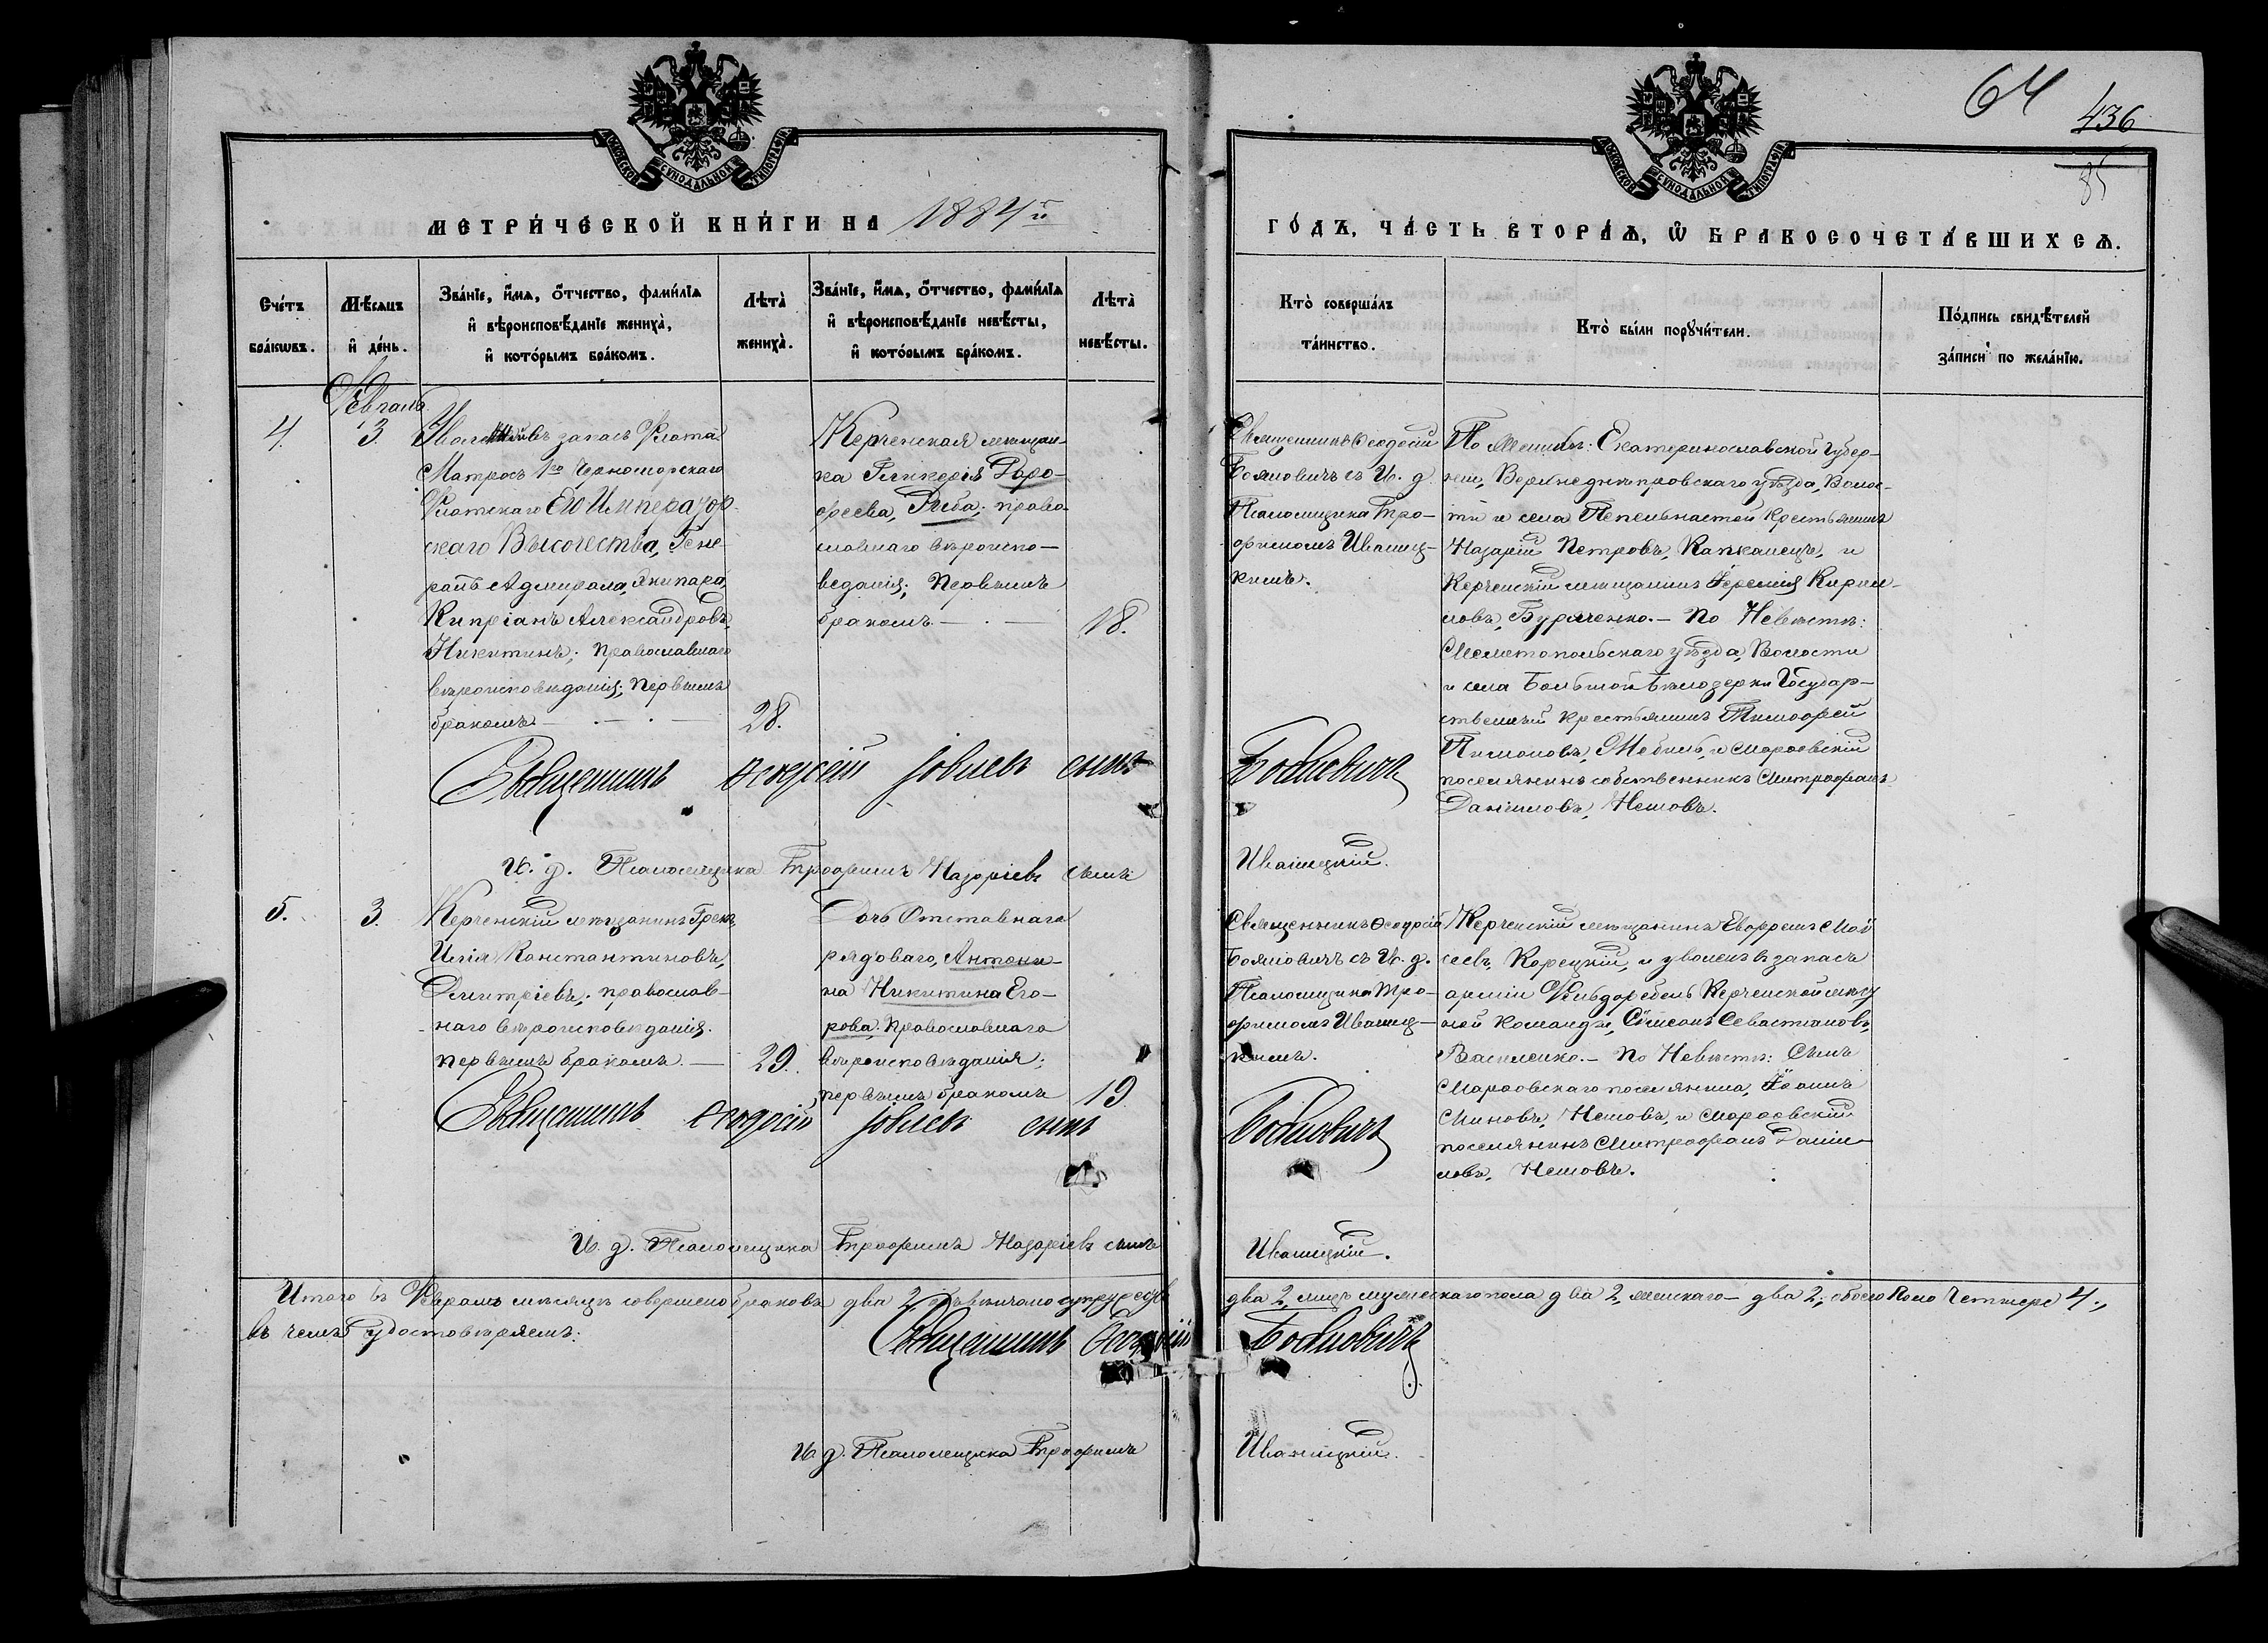 64
436
85
МОСКОВСКОЙ СѴНОДАЛЬНОЙ ТИПОГРАФІИ
МОСКОВСКОЙ СѴНОДАЛЬНОЙ ТИПОГРАФІИ
МЕТРИ́ЧЕСКОЙ КНИ́ГИ НА 1884й
ГО́ДЪ, ЧА́СТЬ ВТОРА́Ѧ, Ѽ БРАКОСОЧЕТА́ВШИХСѦ.
Сче́тъ бра́кѡвъ.
Мѣ́сѧцъ и҆ де́нь.
Зва́нїе, и҆́мѧ, ѻ҆́тчество, фами́лїѧ
и҆ вѣроисповѣ́данїе жениха̀,
и҆ кото́рымъ бра́комъ.
Лѣта̀ жениха̀.
Зва́нїе, и҆́мѧ, ѻ҆́тчество, фами́лїѧ
и҆ вѣроисповѣ́данїе невѣ́сты,
и҆ кото́рымъ бра́комъ.
Лѣта̀ невѣ́сты.
Кто̀ соверша́лъ
та́инство.
Кто̀ бы́ли порꙋчи́тели.
По́дпись свидѣ́телей
за́писи по жела́нїю.
Февраль
4.
3.
въ запасъ Флота
Матросъ 1го Черноморскаго
Флотскаго Его Император-
скаго Высочества, Гене-
ралъ Адмирала, Экипажа,
Кипріанъ Александровъ,
Никитинъ; Православнаго
вѣроисповѣданія; первымъ
бракомъ.
28.
Керченская мѣщан-
ка Гликерія Доро-
феева, Рыба; право
славнаго вѣроиспо-
веданія; Первымъ
бракомъ.
18.
Священникъ Ѳеодосій
Бояновичъ съ И. д.
Псаломщика Тро-
фимомъ Иваниц-
кимъ.
По Женихѣ: Екатеринославской Губер-
ніи, Верхнеднѣпровскаго уѣзда, Волос-
ти и села Пепельнастой Крестьянинъ
Назарій Петровъ, Капканецъ, и
Керченскій мѣщанинъ Іеремія Кирил-
ловъ, Бураченко.— По Невѣстѣ:
Мелитопольскаго уѣзда, Волости
и села Большой Бѣлозерки Государ-
ственный крестьянинъ Тимофей
и Марфовскій
поселянинъ собственникъ Митрофанъ
Даніиловъ, Немовъ.
Священникъ Ѳеодосій Іовлевъ сынъ Бояновичъ
И. д. Псаломщика Трофимъ Назаріевъ сынъ Иваницкій.
5.
3.
Керченскій мѣщанинъ Грекъ,
Илія Константиновъ,
Дмитріевъ; православ-
наго вѣроисповѣданія.
первымъ бракомъ. —
29.
Дочь Отставнаго
рядоваго, Антони-
на Никитина Его-
рова; Православнаго
вѣроисповѣданія;
первымъ бракомъ
19
Священникъ Ѳеодосій
Бояновичъ съ И. д.
Псаломщика Тро-
фимомъ Иваниц-
кимъ.
Керченскій мѣщанинъ Евфремъ Мой
сеевъ, Корецкій, и уволенъ въ запасъ
арміи Фельдфебель Керченской мѣст
ной Команды, Симеонъ Севастіановъ,
Василенко.— По Невѣстѣ: Сынъ
Марфовскаго поселянина, Іоаннъ
Миновъ, Немовъ, и Марфовскій
поселянинъ Митрофанъ Даніи-
ловъ, Немовъ.
Священникъ Ѳеодосій Іовлевъ сынъ Бояновичъ
И. д. Псаломщика Трофимъ Назаріевъ сынъ Иваницкій.
Итого въ Февралѣ мѣсяцѣ совершено браковъ два 2, повѣнчано супружествъ два 2, лицъ мужескаго пола два 2, женскаго— два 2, обоего пола Четыре 4.,
въ чемъ удостовѣряемъ:
Священникъ Ѳеодосій Бояновичъ
И. д. Псаломщика Трофимъ Иваницкій.